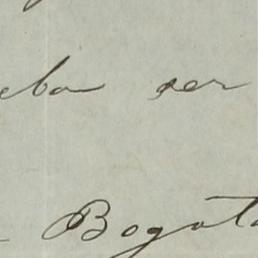 eba ser
Bogota